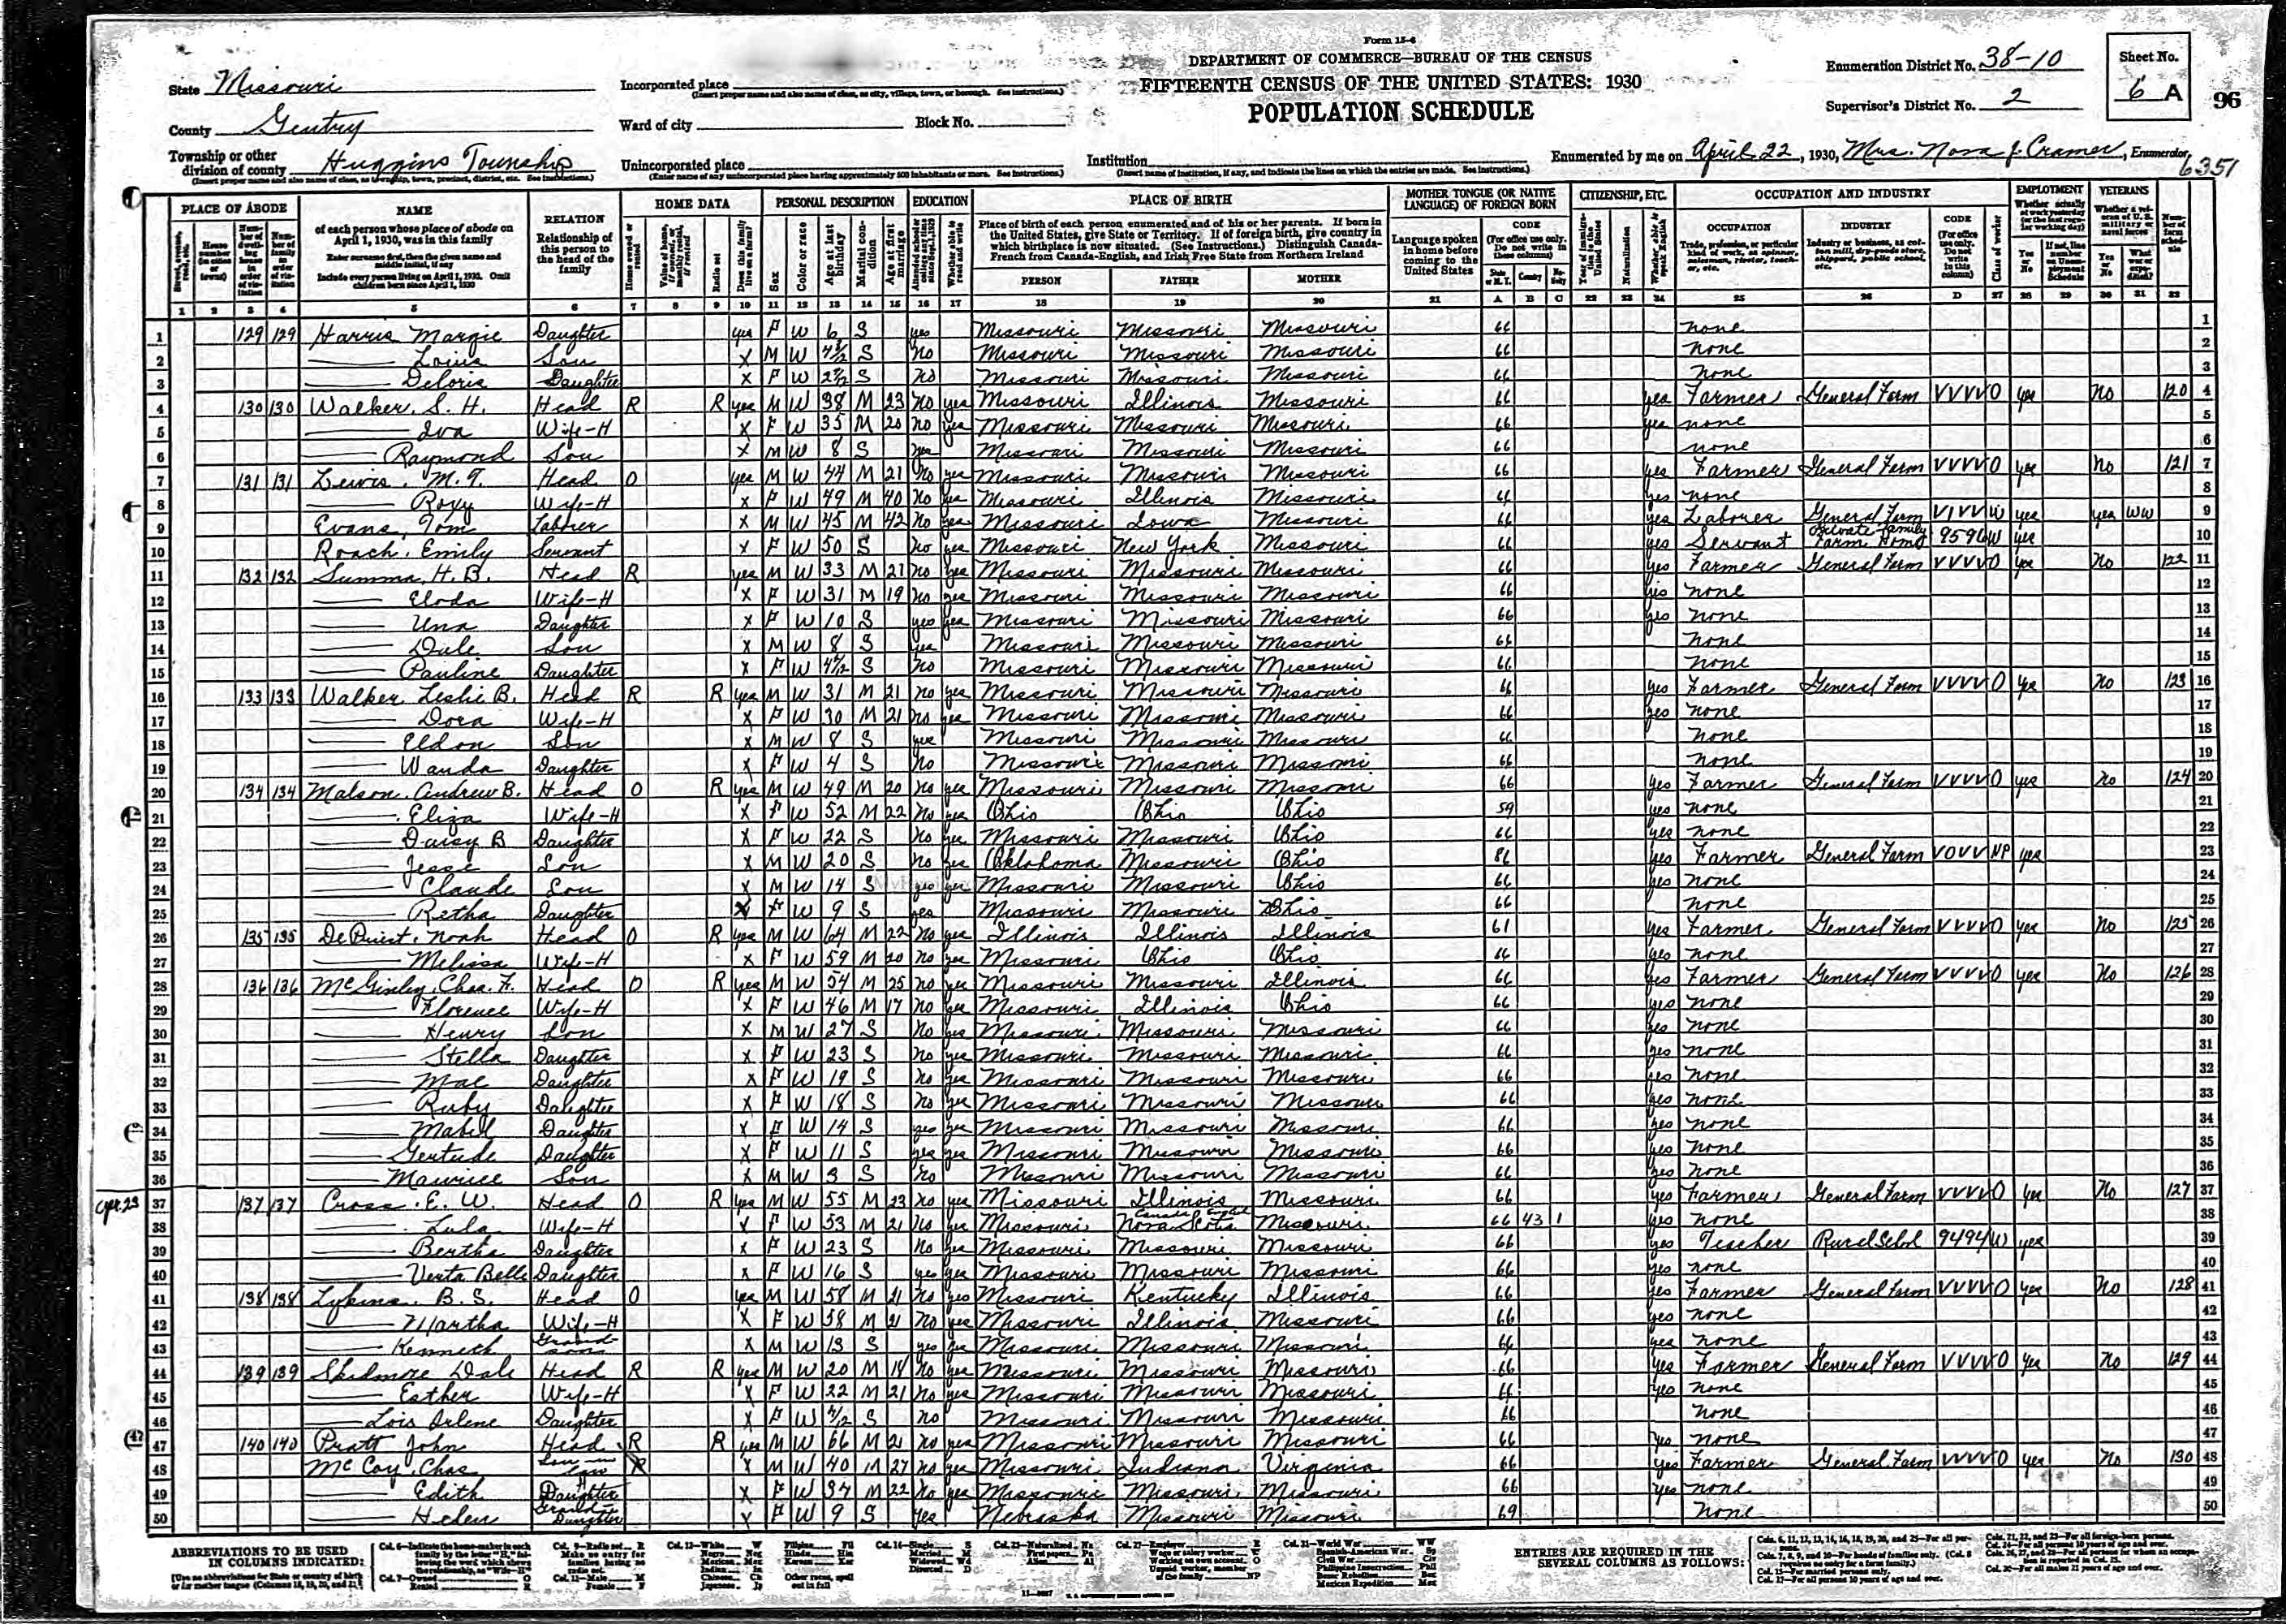 Form 15-6
DEPARTMENT OF COMMERCE—BUREAU OF THE CENSUS
FIFTEENTH CENSUS OF THE UNITED STATES: 1930
POPULATION SCHEDULE
State Missouri
County Gentry
Township or other division of county Huggins Township
Incorporated place
Ward of city Block No.
Unincorporated place
Institution
Enumeration District No. 38-10
Supervisor's District No. 2
Sheet No. 6 A
96
Enumerated by me on April 22, 1930, Mrs. Nora J. Cramer, Enumerator
6351
PLACE OF ABODE NAME RELATION HOME DATA PERSONAL DESCRIPTION EDUCATION PLACE OF BIRTH MOTHER TONGUE (OR NATIVE LANGUAGE) OF FOREIGN BORN CITIZENSHIP, ETC. OCCUPATION AND INDUSTRY EMPLOYMENT VETERANS
PERSON FATHER MOTHER
1 129 129 Harris Margie Daughter yes F W 6 S yes Missouri Missouri Missouri 66 none 1
2 Louis Son X M W S no Missouri Missouri Missouri 66 none 2
3 Deloris Daughter X F W S no Missouri Missouri Missouri 66 none 3
4 130 130 Walker, S. H. Head R R yes M W 38 M 23 no yes Missouri Illinois Missouri 66 yes Farmer General Farm VVVV O yes No 120 4
5 Iva Wife-H X F W 35 M 20 no yes Missouri Missouri Missouri 66 yes none 5
6 Raymond Son X M W 8 S yes Missouri Missouri Missouri 66 none 6
7 131 131 Lewis, M. T. Head O yes M W 44 M 21 no yes Missouri Missouri Missouri 66 yes Farmer General Farm VVVV O yes No 121 7
8 Roxy Wife-H X F W 49 M 40 no yes Missouri Illinois Missouri 66 yes none 8
9 Evans, Tom Laborer X M W 45 M 42 no yes Missouri Iowa Missouri 66 yes Laborer General Farm VIVV W yes yes WW 9
10 Roach, Emily Servant X F W 50 S no yes Missouri New York Missouri 66 yes Servant Private Family Farm Home 9596 W yes 10
11 132 132 Summa, H. B. Head R yes M W 33 M 21 no yes Missouri Missouri Missouri 66 yes Farmer General Farm VVVV O yes No 122 11
12 Eloda Wife-H X F W 31 M 19 no yes Missouri Missouri Missouri 66 yes none 12
13 Una Daughter X F W 10 S yes yes Missouri Missouri Missouri 66 yes none 13
14 Dale Son X M W 8 S yes Missouri Missouri Missouri 66 none 14
15 Pauline Daughter X F W S no Missouri Missouri Missouri 66 none 15
16 133 133 Walker Leslie B. Head R R yes M W 31 M 21 no yes Missouri Missouri Missouri 66 yes Farmer General Farm VVVV O yes No 123 16
17 Dora Wife-H X F W 30 M 21 no yes Missouri Missouri Missouri 66 yes none 17
18 Eldon Son X M W 8 S yes Missouri Missouri Missouri 66 none 18
19 Wanda Daughter X F W 4 S no Missouri Missouri Missouri 66 none 19
20 134 134 Matson, Andrew B. Head O R yes M W 49 M 20 no yes Missouri Missouri Missouri 66 yes Farmer General Farm VVVV O yes No 124 20
21 Eliza Wife-H X F W 52 M 22 no yes Ohio Ohio Ohio 59 yes none 21
22 Daisy B Daughter X F W 22 S no yes Missouri Missouri Ohio 66 yes none 22
23 Jesse Son X M W 20 S no yes Oklahoma Missouri Ohio 86 yes Farmer General Farm VOVV NP yes 23
24 Claude Son X M W 14 S yes yes Missouri Missouri Ohio 66 yes none 24
25 Retha Daughter X F W 9 S yes Missouri Missouri Ohio 66 none 25
26 135 135 DePriest, Noah Head O R yes M W 64 M 22 no yes Illinois Illinois Illinois 61 yes Farmer General Farm VVVV O yes No 125 26
27 Melissa Wife-H X F W 59 M 20 no yes Missouri Ohio Ohio 66 yes none 27
28 136 136 McGinley, Chas. F. Head O R yes M W 54 M 25 no yes Missouri Missouri Illinois 66 yes Farmer General Farm VVVV O yes No 126 28
29 Florence Wife-H X F W 46 M 17 no yes Missouri Illinois Ohio 66 yes none 29
30 Henry Son X M W 27 S no yes Missouri Missouri Missouri 66 yes none 30
31 Stella Daughter X F W 23 S no yes Missouri Missouri Missouri 66 yes none 31
32 Mae Daughter X F W 19 S no yes Missouri Missouri Missouri 66 yes none 32
33 Ruby Daughter X F W 18 S no yes Missouri Missouri Missouri 66 yes none 33
34 Mabel Daughter X F W 14 S yes yes Missouri Missouri Missouri 66 yes none 34
35 Gertude Daughter X F W 11 S yes yes Missouri Missouri Missouri 66 yes none 35
36 Maurice Son X M W 3 S no Missouri Missouri Missouri 66 yes none 36
37 137 137 Cross, E. W. Head O R yes M W 55 M 23 no yes Missouri Illinois Missouri 66 yes Farmer General Farm VVVV O yes No 127 37
38 Lula Wife-H X F W 53 M 21 no yes Missouri Canada English Nova Scotia Missouri 66 43 1 yes none 38
39 Bertha Daughter X F W 23 S no yes Missouri Missouri Missouri 66 yes Teacher Rural School 9494 W yes 39
40 Verta Belle Daughter X F W 16 S yes yes Missouri Missouri Missouri 66 yes none 40
41 138 138 Lykins, B. S. Head O yes M W 58 M 21 no yes Missouri Kentucky Illinois 66 yes Farmer General Farm VVVV O yes No 128 41
42 Martha Wife-H X F W 58 M 21 no yes Missouri Illinois Missouri 66 yes none 42
43 Kenneth Grand son X M W 13 S yes yes Missouri Missouri Missouri 66 yes none 43
44 139 139 Skidmore Dale Head R R yes M W 20 M no yes Missouri Missouri Missouri 66 yes Farmer General Farm VVVV O yes No 129 44
45 Esther Wife-H X F W 22 M 21 no yes Missouri Missouri Missouri 66 yes none 45
46 Lois Arlene Daughter X F W S no Missouri Missouri Missouri 66 none 46
47 140 140 Pratt John Head R R yes M W 66 M 21 no yes Missouri Missouri Missouri 66 yes none 47
48 McCoy, Chas Son-in law X M W 40 M 27 no yes Missouri Indiana Virginia 66 yes Farmer General Farm VVVV O yes No 130 48
49 Edith Daughter X F W 34 M 22 no yes Missouri Missouri Missouri 66 yes none 49
50 Helen Grand Daughter X F W 9 S yes Nebraska Missouri Missouri 69 None 50
ABBREVIATIONS TO BE USED IN COLUMNS INDICATED:
ENTRIES ARE REQUIRED IN THE SEVERAL COLUMNS AS FOLLOWS: